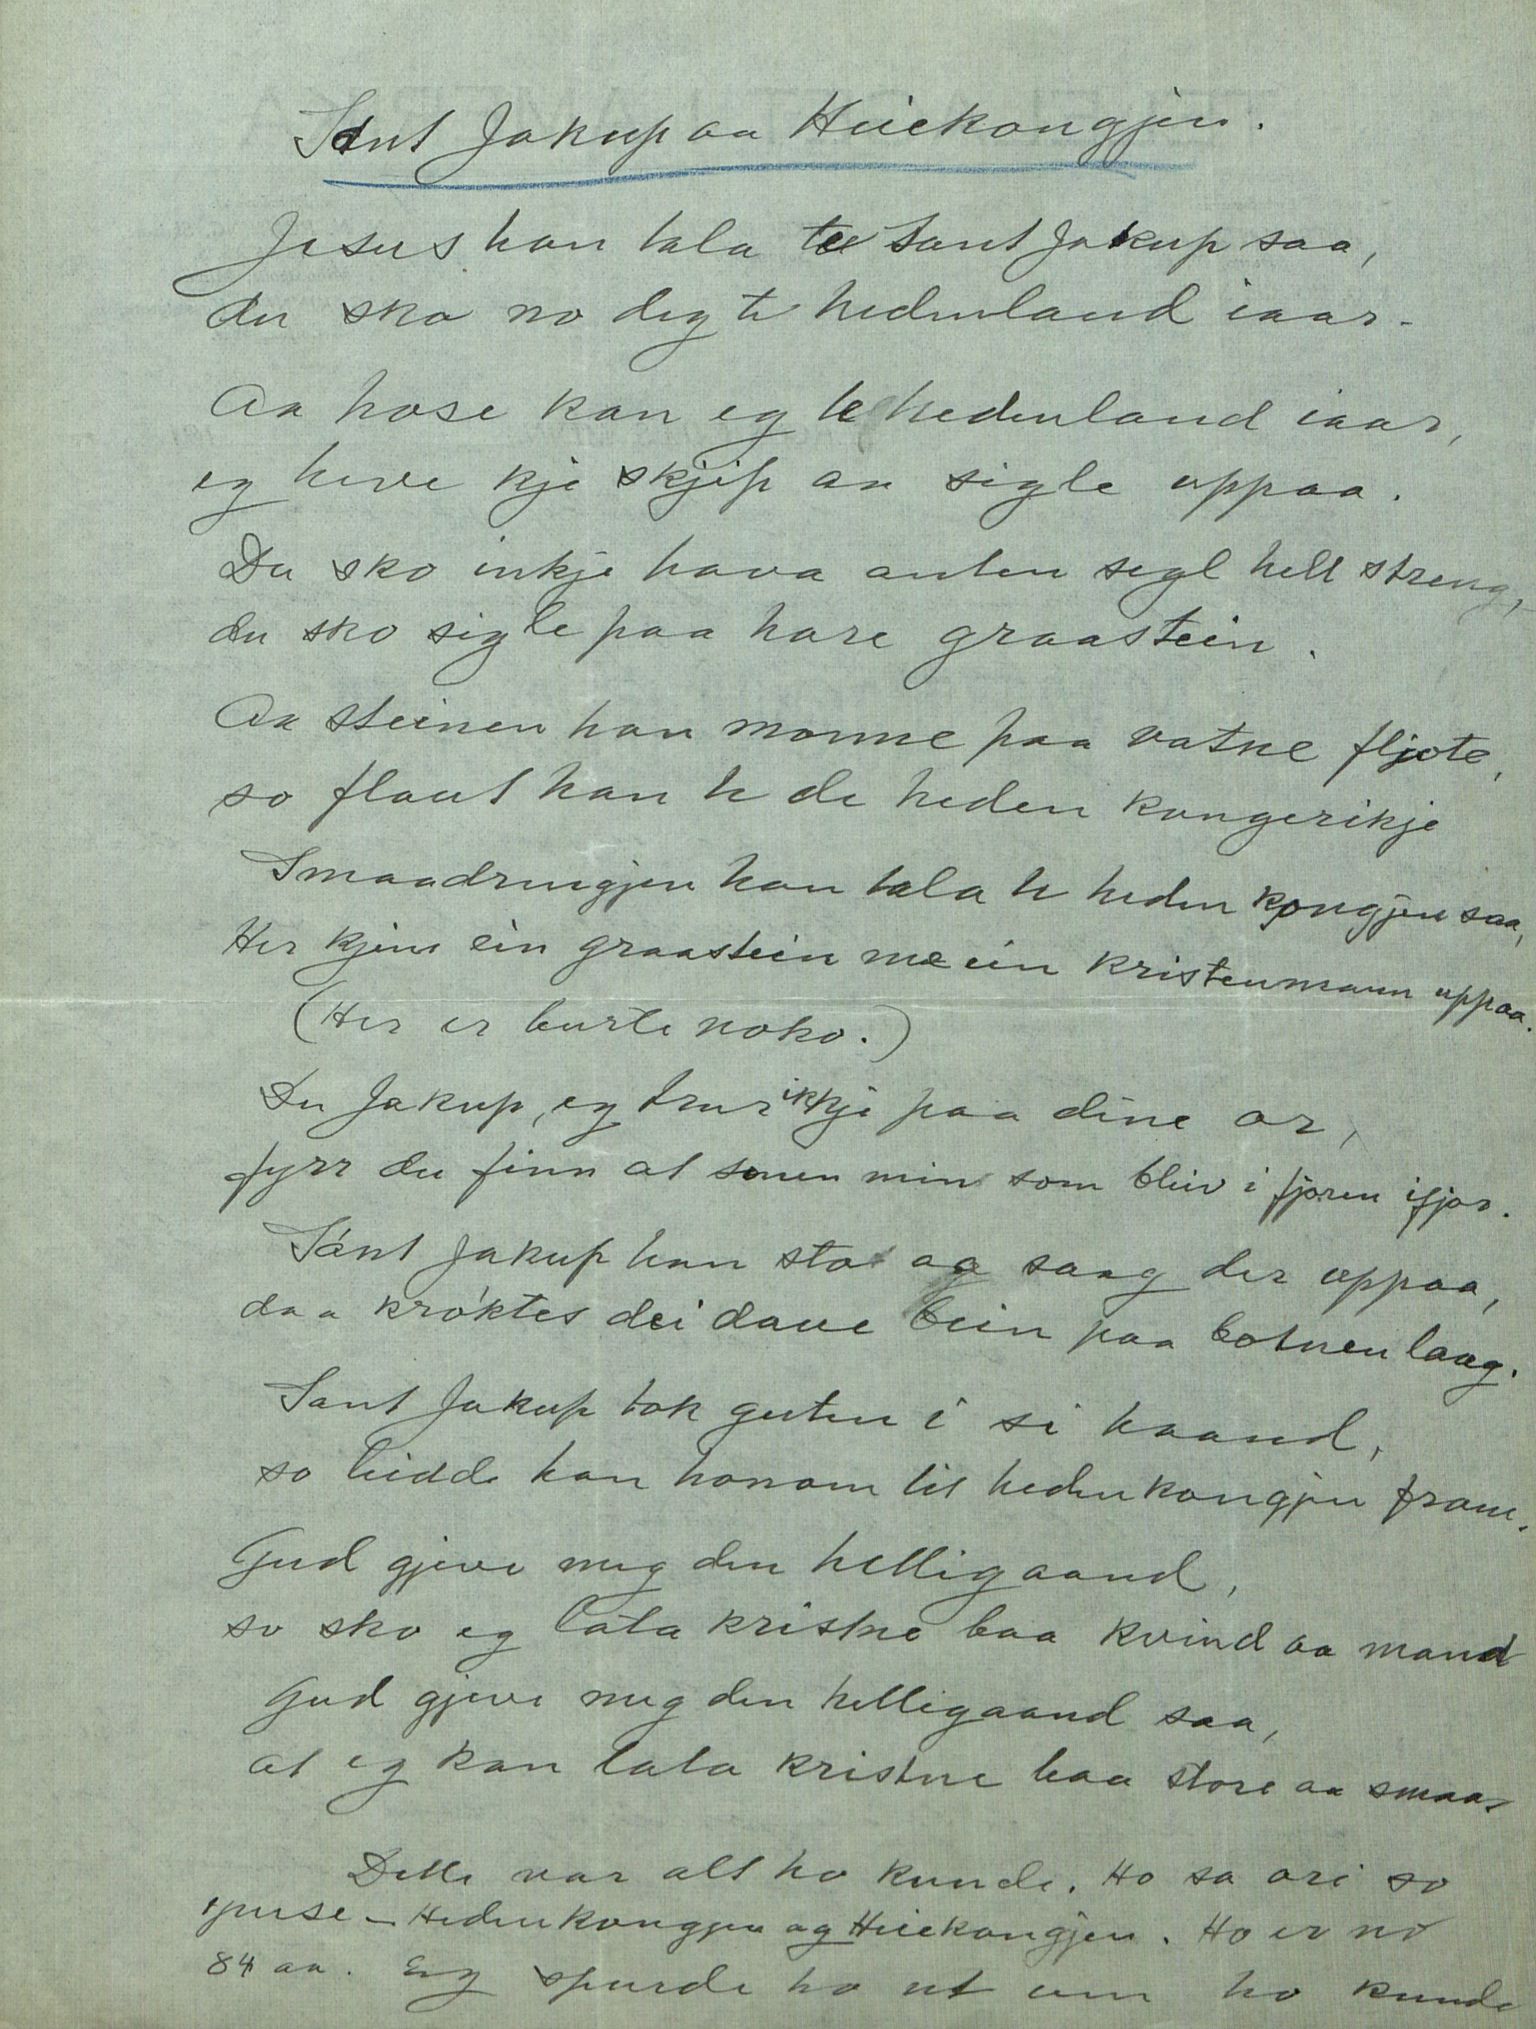 Sant Jakup aa Heiekongjen.
Jesus han tala te Sant Jakup saa,
du sko no deg te hedenland iaar.
Aa hose kan eg te hedenland iaar,
eg heve kje skjip aa sigle uppaa.
Du sko inkje hava anten segl hell streng,
du sko sigle paa hare graastein.
Aa steinen han monne paa vatne fljote,
so flaut han te de heden kongerikje
Smaadrengjen han tala te heden kongjen saa,
Her kjem ein graastein mæ ein kristenmann uppaa.
(Her er burte noko.)
Du Jakup, eg trur ikkje paa dine or,
fyrr du finn at sonen min som bleiv i fjoren ifjor.
Sánt Jakup han sto aa saag der uppaa,
daa króktes dei daue bein paa botnen laag.
Sant Jakup tok guten i si haand,
so leidde han honom til hedenkongjen fram.
Gud gjeve meg den helligaand,
so sko eg lata kristne baa kvind aa mand
Gud gjeve meg den helligaand saa,
at eg kan lata kristne baa store aa smaa
Dette var alt ho kunde. Ho sa ori so
ymse – Hedenkongjen og Heiekongjen. Ho er no
84 aa. Eg spurde ho ut um ho kunde